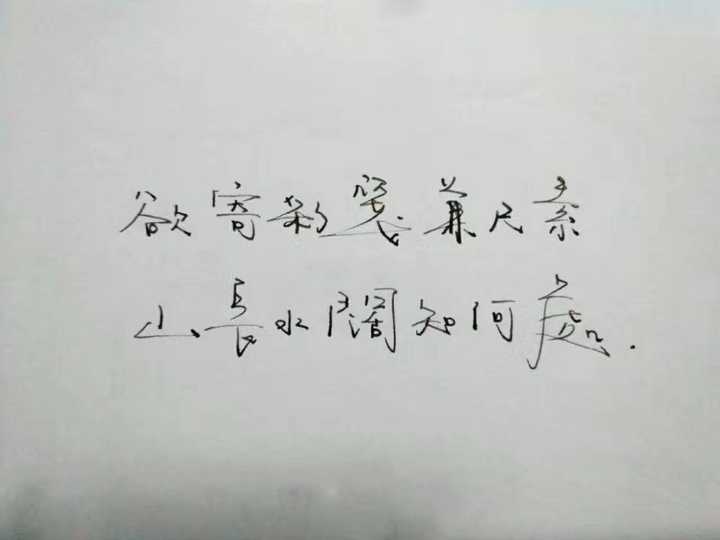 欲寄彩箋兼尺素
山長水闊知何處.